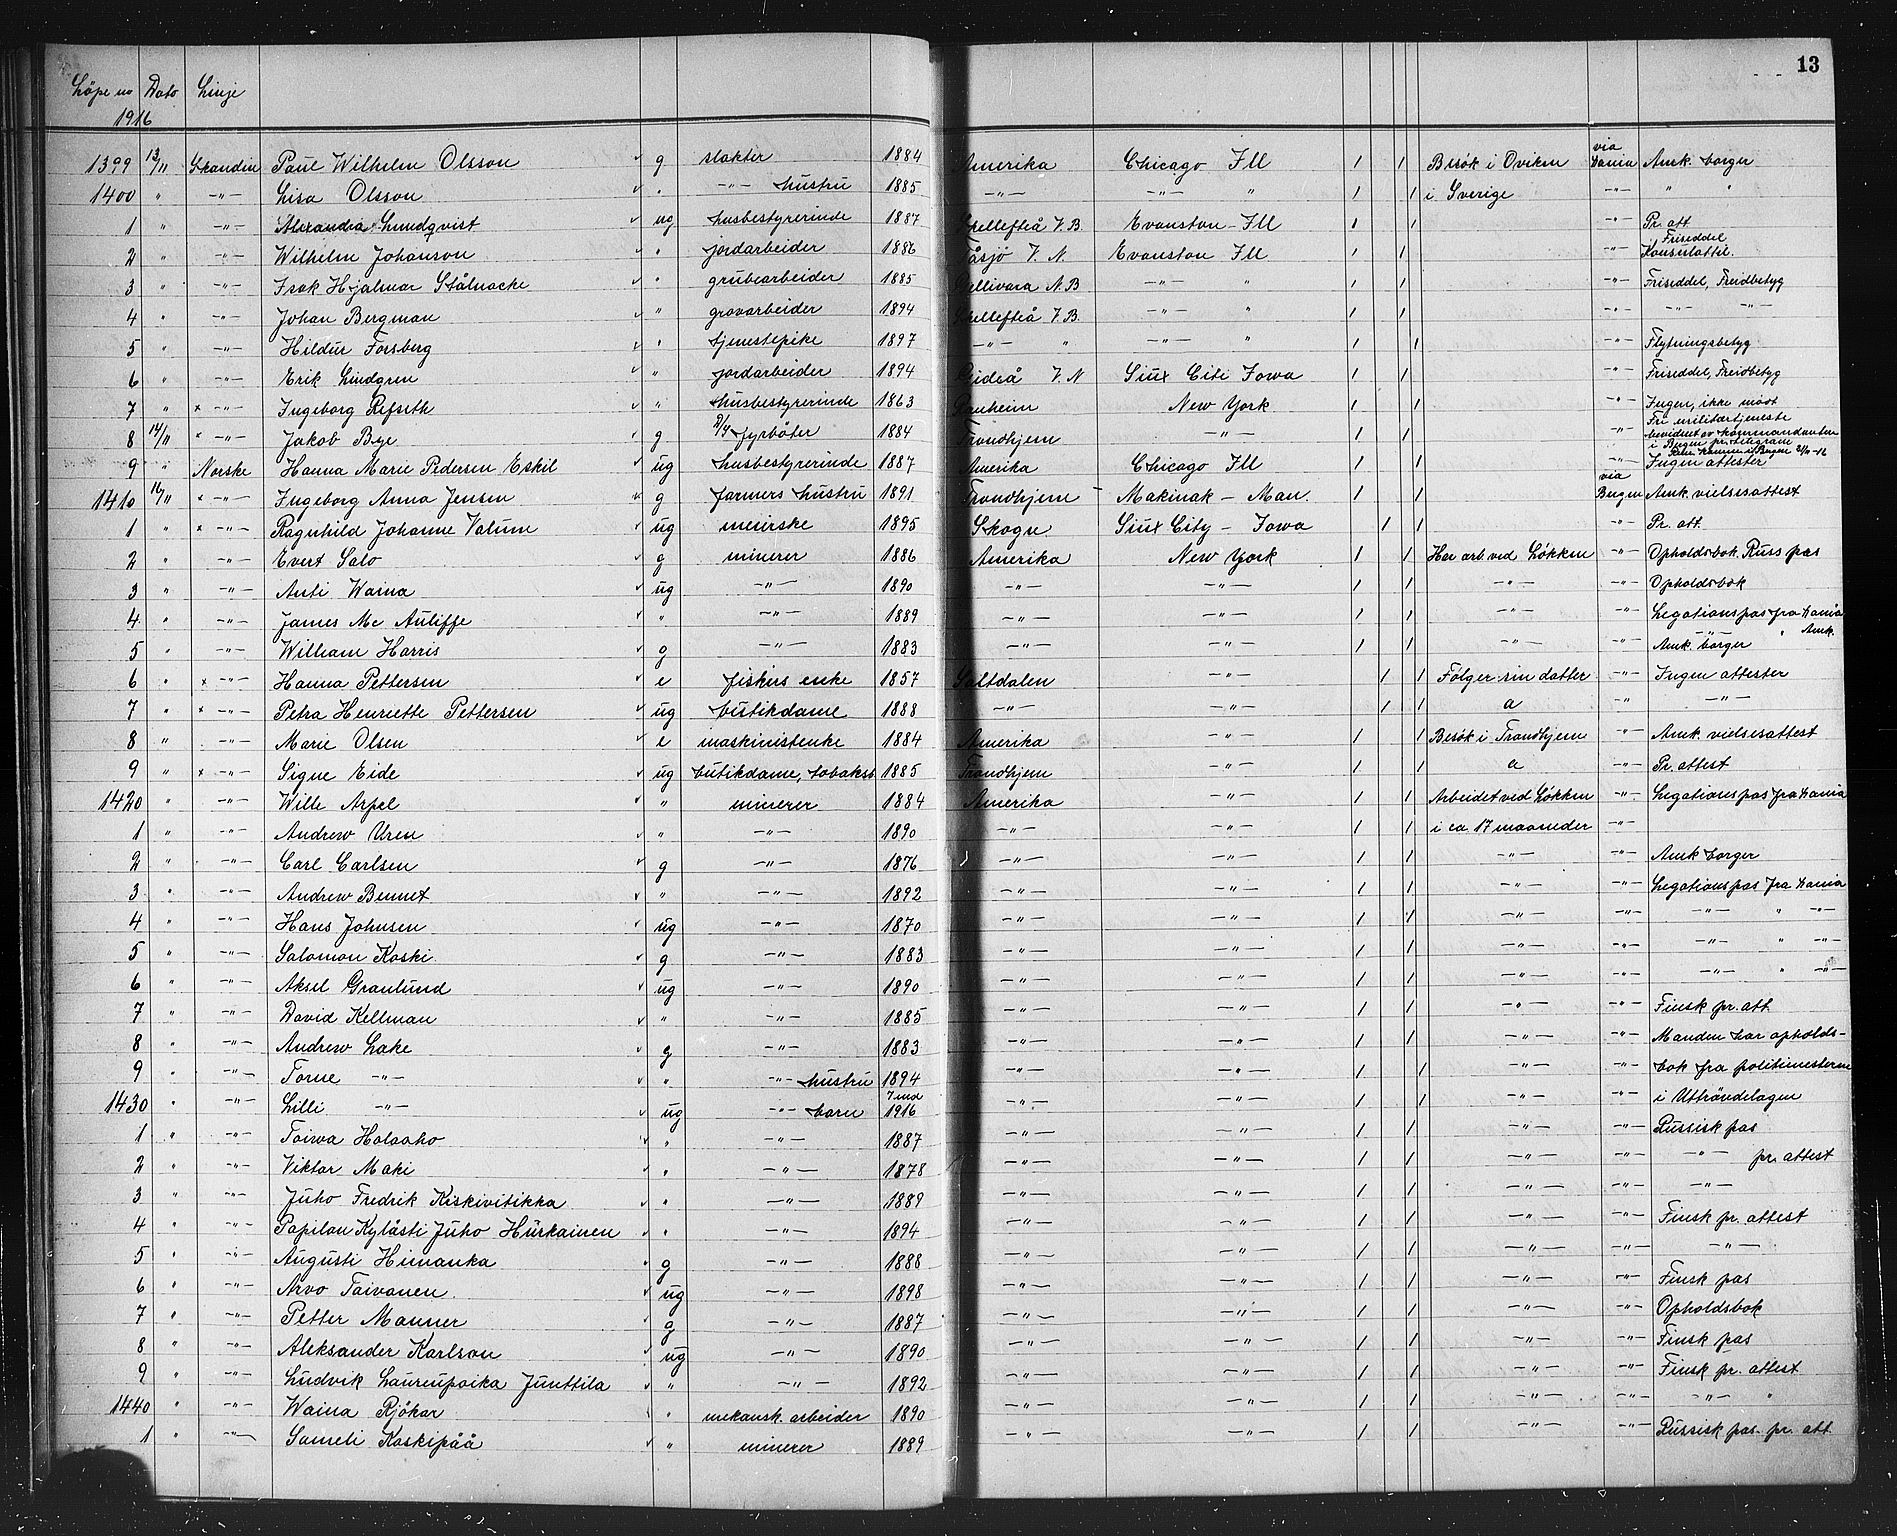 13
Löpe no Dato Linje
1916
1399 13/11 Skandin Paul Wilhelm Olsson g slakter 1884 Amerika Chicago Ill 1 1 Besök i Oviken via Kania Amk. borger
1400 " -"- Lisa Olsson " -"- hustru 1885 -"- -"- " 1 1 i Sverige -"- " "
1 " -"- Alexandra Lundqvist ug husbestyrerinde 1887 Skellefteå V.B. Evanston Ill 1 1 -"- Pr. att.
2 " -"- Wilhelm Johanson " jordarbeider 1886 Tåsjö V. N. Evanston Ill 1 1 -"- Friseddel Konsulattil.
3 " -"- Isak Hjalmar Stålnacke " grubearbeider 1885 Gellivara N.B -"- " 1 1 -"- Friseddel, Freidbetyg
4 " -"- Johan Bergman " gravarbeider 1894 Skellefteå V.B. -"- " 1 1 -"- -"- -"-
5 " -"- Hildur Forsberg " tjenestepike 1897 -"- " -"- " 1 1 -"- Flytningsbetyg
6 " -"- Erik Lindgren " jordarbeider 1894 Gideå V.N Siux Citi Iowa 1 1 -"- Friseddel, Freidbetyg
7 " x -"- Ingeborg Refseth " husbestyrerinde 1863 Ranheim New York 1 1 -"- Ingen, ikke mödt
8 14/11 x -"- Jakob Bye g fyrböter 1884 Trondhjem -"- 1 1 -"- Fri militærtjeneste bevidnet av kommandanten i Bergen pr. telegram
9 " Norske Hanna Marie Pedersen Eskil ug husbestyrerinde 1887 Amerika Chicago Ill 1 1 -"- Ingen attester
1410 16/11 x -"- Ingeborg Anna Jensen g farmers hustru 1891 Trondhjem Makinak - Man. 1 1 via Bergen Amk. vielsesattest
1 " x -"- Ragnhild Johanne Valum ug meierske 1895 Skogn Siux City - Iowa 1 1 -"- Pr. att.
2 " -"- Evert Salo g minerer 1886 Amerika New York 1 1 Har arb. ved Løkken -"- Opholdsbok. Russ pas
3 " -"- Anti Waina ug -"- 1890 -"- -"- 1 1 -"- -"- Opholdsbok
4 " -"- James Mc Auliffe " -"- 1889 -"- -"- 1 1 -"- -"- Legationspas fra Kania
5 " -"- William Harris g -"- 1883 -"- -"- 1 1 -"- -"- Amk. borger -"- " Amk.
6 " x -"- Hanna Pettersen e fiskers enke 1857 Saltdalen -"- 1 1 Følger sin datter -"- Ingen attester
7 " x -"- Petra Henriette Pettersen ug butikdame 1888 -"- -"- 1 1 a " -"-
8 " -"- Marie Olsen e maskinistenke 1884 Amerika -"- 1 1 Besök i Trondhjem -"- Amk. vielsesattest
9 " x -"- Signe Eide ug butikdame, tobaksb. 1885 Trondhjem -"- 1 1 a -"- Pr. attest
1420 " -"- Wille Arpel " minerer 1884 Amerika -"- 1 1 Arbeidet ved Løkken -"- Legationspas fra Kania
1 " -"- Andrew Uren " -"- 1890 -"- -"- 1 1 i ca 17 maaneder -"-
2 " -"- Carl Carlsen g -"- 1876 -"- -"- 1 1 -"- -"- Amk borger
3 " -"- Andrew Bennet " -"- 1892 -"- -"- 1 1 -"- -"- Legationspas fra Kania
4 " -"- Hans Johnsen ug -"- 1870 -"- -"- 1 1 -"- -"- -"- " -"-
5 " -"- Salomon Koski g -"- 1883 -"- -"- 1 1 -"- -"- -"- " -"-
6 " -"- Aksel Granlund ug -"- 1890 -"- -"- 1 1 -"- -"- -"- " -"-
7 " -"- David Kellman " -"- 1885 -"- -"- 1 1 -"- -"- Finsk pr. att.
8 " -"- Andrew Lake g -"- 1883 -"- -"- 1 1 -"- -"- Manden har opholds-
9 " -"- Torne -"- " -"- hustru 1894 -"- -"- 1 1 -"- -"- bok fra politimesteren
1430 " -"- Lilli -"- ug -"- barn 7 md 1916 -"- -"- 1 1 -"- -"- i Uttröndelagen
1 " -"- Toiwa Halaaho " -"- 1887 -"- -"- 1 1 -"- -"- Russisk pas
2 " -"- Viktor Maki " -"- 1878 -"- -"- 1 1 -"- -"- -"- pr. attest
3 " -"- Juho Fredrik Kiskivitikka " -"- 1889 -"- -"- 1 1 -"- -"- -"-
4 " -"- Papilan Kylästi Juho Hurkainen " -"- 1894 -"- -"- 1 1 -"- -"- Finsk pr. attest
5 " -"- Augusti Himanka g -"- 1888 -"- -"- 1 1 -"- -"- -"-
6 " -"- Arvo Taivanen ug -"- 1898 -"- -"- 1 1 -"- -"- Finsk pas
7 " -"- Petter Manner g -"- 1887 -"- -"- 1 1 -"- -"- Opholdsbok
8 " -"- Aleksander Karlson ug -"- 1890 -"- -"- 1 1 -"- -"- Finsk pas
9 " -"- Ludvik Laurenpoika Junttila " -"- 1892 -"- -"- 1 1 -"- -"- Finsk pr. attest
1440 " -"- Waina Rjökar " mekansk. arbeider 1890 -"- -"- 1 1 -"- -"- -"- "
1 " -"- Sameli Koskipää " minerer 1889 -"- -"- 1 1 -"- -"- Russisk pas. pr. att